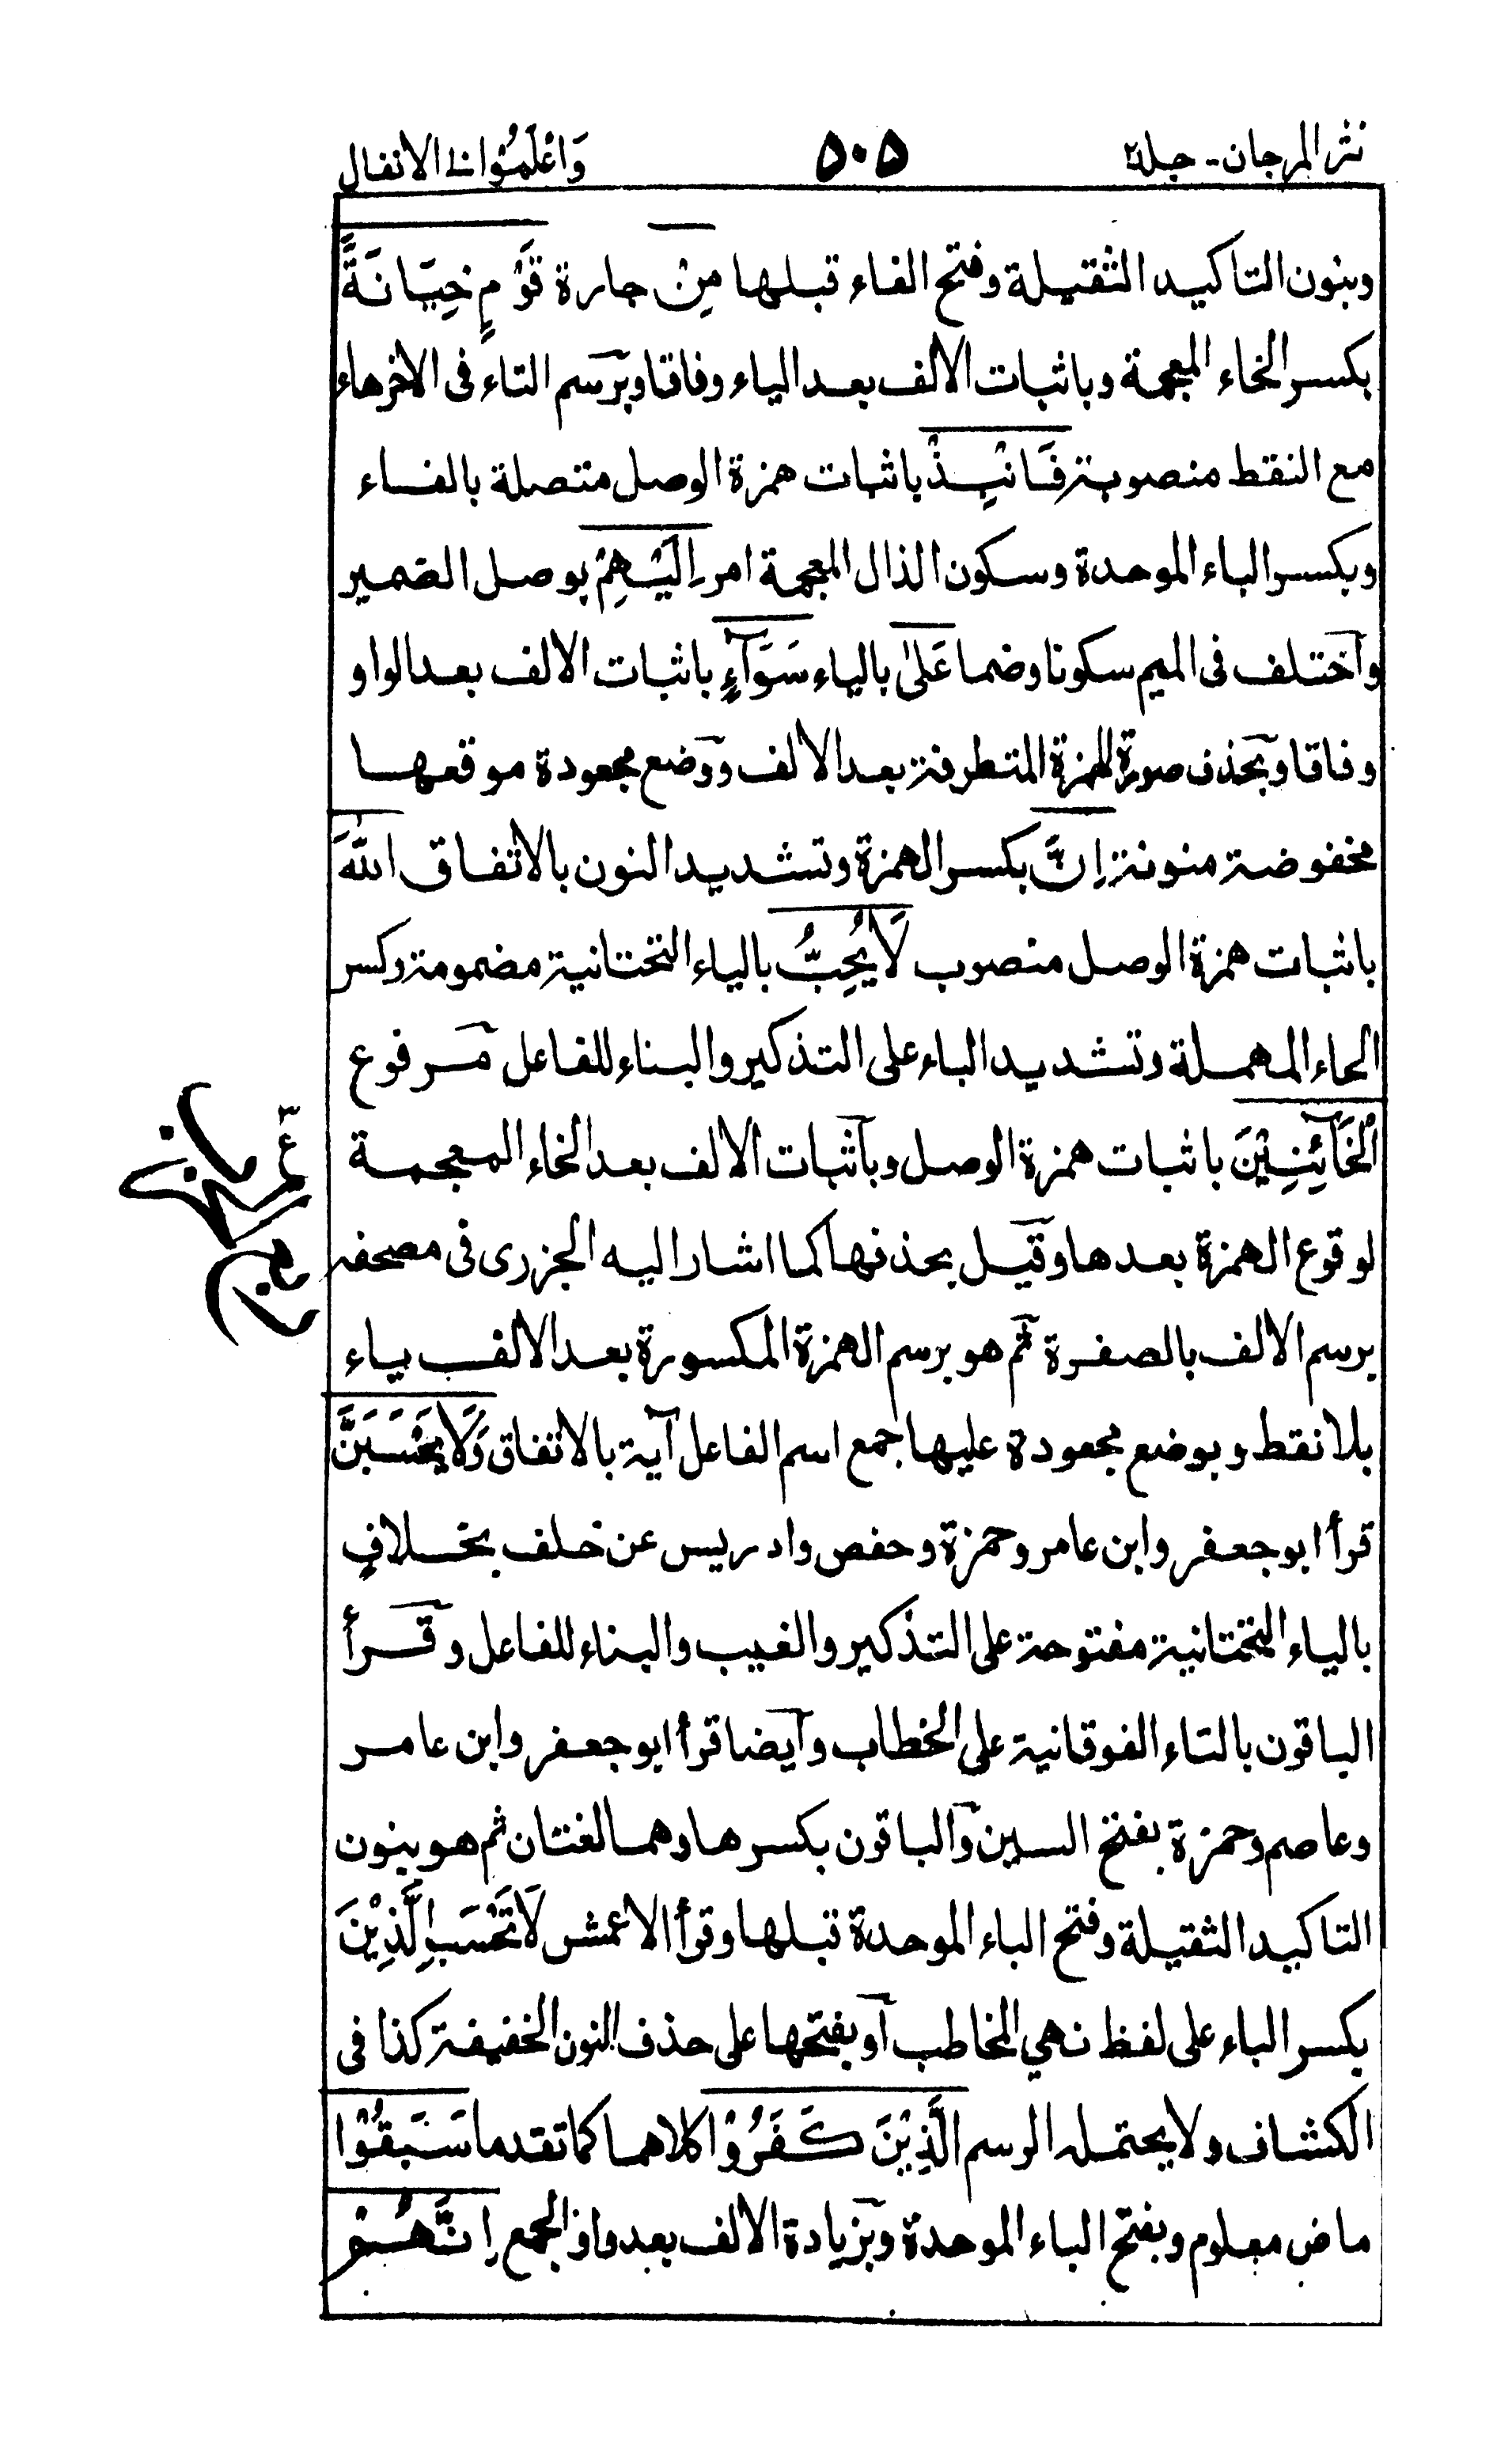 نثر المرجان - جلد٢ ٥٠٥ وَاعْلَمُوْا الانفال
وبنون التاكيد الثقيلة وفتح الفاء قبلها مِنْ جارة قَوْمٍ خِيَانَةً
بكسر الخاء المعجمة وباثبات الالف بعد الياء وفاقا وبرسم التاء فى الاخرهاء
مع النقط منصوبة فَانْبِذْ باثبات همزة الوصل متصلة بالفاء
وبكسر الباء الموحدة وسكون الذال المعجمة امر اِلَيْهِمْ بوصل الضمير
واختلف فى الميم سكونا وضما عَلٰى بالياء سَوَآءٍ باثبات الالف بعد الواو
وفاقا وبحذف صورة الهمزة المتطرفة بعد الالف ووضع مجعودة موقعها
مخفوضة منونة اِنَّ بكسر الهمزة وتشديد النون بالاتفاق اللّٰهَ
باثبات همزة الوصل منصوب لَا يُحِبُّ بالياء التحتانية مضمومة وكسر
الحاء المهملة وتشديد الباء على التذكير والبناء للفاعل مرفوع
الْخَآئِنِيْنَ باثبات همزة الوصل وباثبات الالف بعد الخاء المعجمة
لوقوع الهمزة بعدها وقيل بحذفها كما اشار اليه الجزرى فى مصحفه
برسم الالف بالصفرة ثم هو برسم الهمزة المكسورة بعد الالف ياء
بلا نقط وبوضع مجعودة عليها جمع اسم الفاعل آية بالاتفاق وَلَا يَحْسَبَنَّ
قرأ ابو جعفر وابن عامر وحمزة وحفص وادريس عن خلف بخلافٍ
بالياء التحتانية مفتوحة على التذكير والغيب والبناء للفاعل وقرأ
الباقون بالتاء الفوقانية على الخطاب وآيضا قرأ ابو جعفر وابن عامر
وعاصم وحمزة بفتح السين والباقون بكسرها وهما لغتان ثم هو بنون
التاكيد الثقيلة وفتح الباء الموحدة قبلها وقرأ الاعمش لَا تَحْسَبِ الَّذِيْنَ
بكسر الباء على لفظ نهي المخاطب آو بفتحها على حذف النون الخفيفة كذا فى
الكشاف ولا يحتمله الرسم الَّذِيْنَ كَفَرُوْا كلاهما كما تقدما سَبَقُوْا
ماض معلوم وبفتح الباء الموحدة وبزيادة الالف بعد واو الجمع اِنَّهُمْ